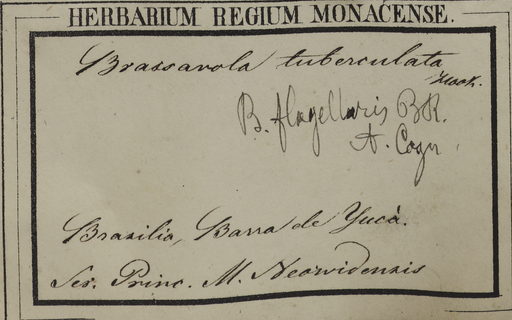 HERBARIUM REGIUM MONACENSE.
Brassavola tuberculata
Hook.
B. flagellaris BR.
A. Cogn.
Brasilia, Barra de Yucù.
Ser. Princ. M. Neowidensis